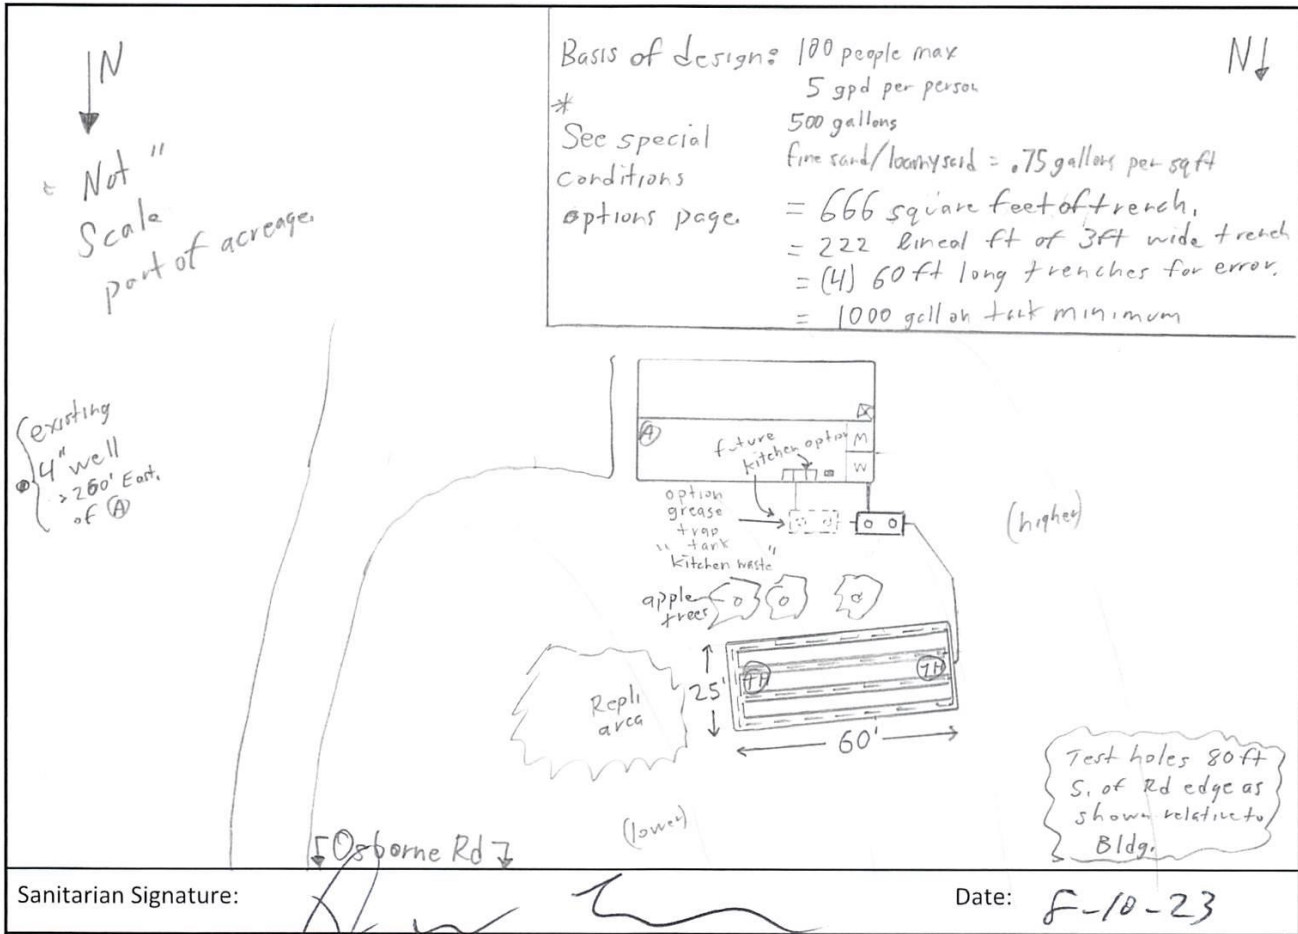 N
" Not "
Scale
part of acreage.
Basis of design: 100 people max
5 gpd per person
*
500 gallons
See special
conditions
options page.
fine sand/loamy sand = .75 gallons per sqft
= 666 square feet of trench.
= 222 lineal ft of 3ft wide trench
= (4) 60 ft long trenches for error.
= 1000 gallon tank minimum
N
existing
4" well
>200' East.
of A
A
future
kitchen option
M
W
option
grease
trap
tank
"kitchen waste"
(higher)
apple
trees
TH
TH
25'
60'
Repl.
area
(lower)
Test holes 80 ft
S. of Rd edge as
shown relative to
Bldg.
Osborne Rd
Sanitarian Signature:
Date: 8-10-23